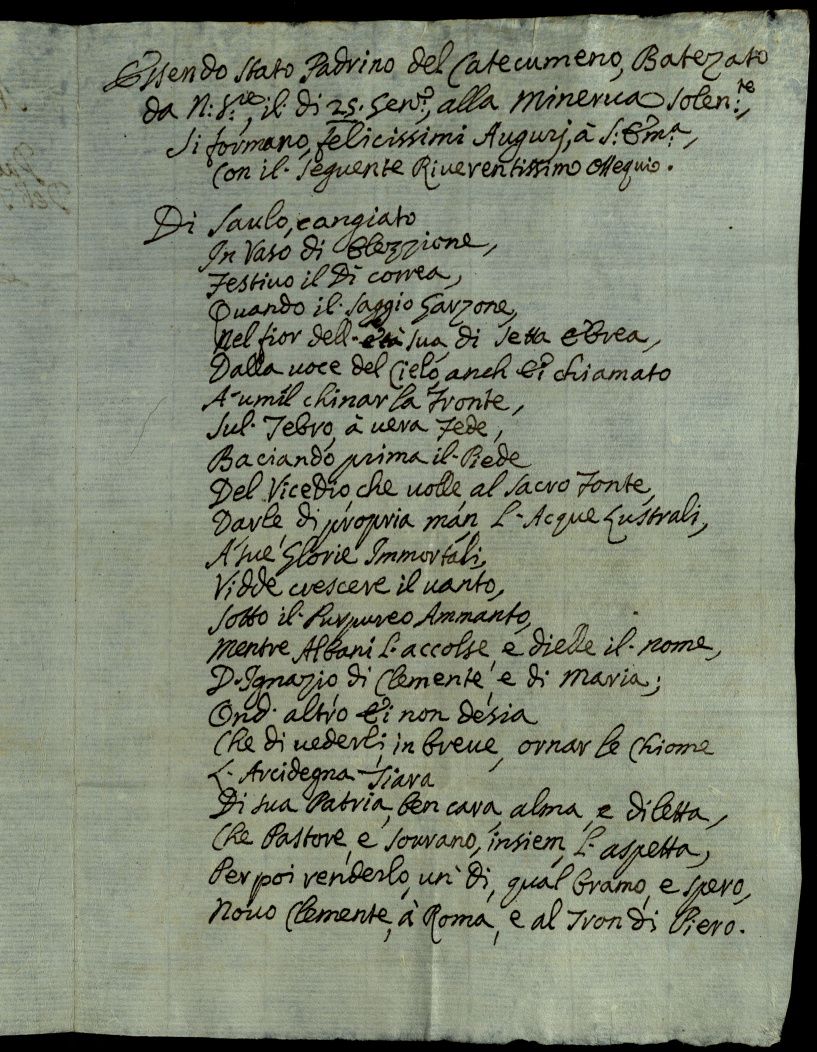 Essendo stato Padrino del Catecumeno, Batezato
da N: S:re, il di 25. Gen:o, alla Minerua Solen:te,
si formano, felicissimi Augurj, à S: Em:a,
Con il seguente Riuerentissimo Ossequio.
Di Saulo, cangiato
In Vaso di Elezzione,
Festiuo il Di correa,
Quando il saggio Garzone,
Nel fior dell' età sua, di setta Ebrea,
Dalla uoce del Cielo, anch' Ei chiamato
A' umìl chinar la Fronte,
Sul Tebro, à uera Fede,
Baciando prima il Piede
Del Vicedio che uolle, al Sacro Fonte,
Darle, di propria màn L' Acque Lustrali,
A' sue Glorie Immortali,
Vidde crescere il uanto,
Sotto il Purpureo Ammanto,
Mentre Albani L' accolse, e dielle il nome,
D' Ignazio di Clemente, e di Maria;
Ond' altro Ei non desìa
Che di uederli, in breue, ornar le Chiome
L' Arcidegna Tiara
Di sua Patria, ben cara, alma, e diletta,
Che Pastore, e Sourano, insiem, L' aspetta,
Per poi renderlo, un' dì, qual bramo, e spero,
Nouo Clemente, à Roma, e al Tron di Piero.